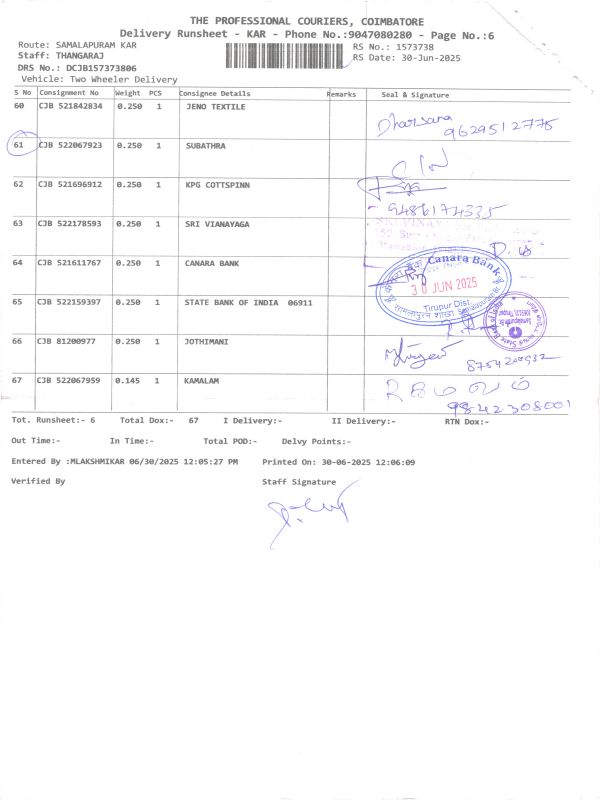 THE PROFESSIONAL COURIERS, COIMBATORE
Delivery Runsheet - KAR - Phone No.:9047080280 - Page No.:6
Route: SAMALAPURAM KAR
RS No.: 1573738
Staff: THANGARAJ
RS Date: 30-Jun-2025
DRS No.: DCJB157373806
Vehicle: Two Wheeler Delivery
S No Consignment No Weight PCS Consignee Details Remarks Seal & Signature
60 CJB 521842834 0.250 1 JENO TEXTILE
Dharsana
9629512775
61 CJB 522067923 0.250 1 SUBATHRA
62 CJB 521696912 0.250 1 KPG COTTSPINN
9486174335
63 CJB 522178593 0.250 1 SRI VIANAYAGA
64 CJB 521611767 0.250 1 CANARA BANK
Canara Bank
30 JUN 2025
Tirupur Dist.
65 CJB 522159397 0.250 1 STATE BANK OF INDIA 06911
66 CJB 81200977 0.250 1 JOTHIMANI
8754200932
67 CJB 522067959 0.145 1 KAMALAM
9842308001
Tot. Runsheet:- 6 Total Dox:- 67 I Delivery:- II Delivery:- RTN Dox:-
Out Time:- In Time:- Total POD:- Delvy Points:-
Entered By :MLAKSHMIKAR 06/30/2025 12:05:27 PM Printed On: 30-06-2025 12:06:09
Verified By Staff Signature